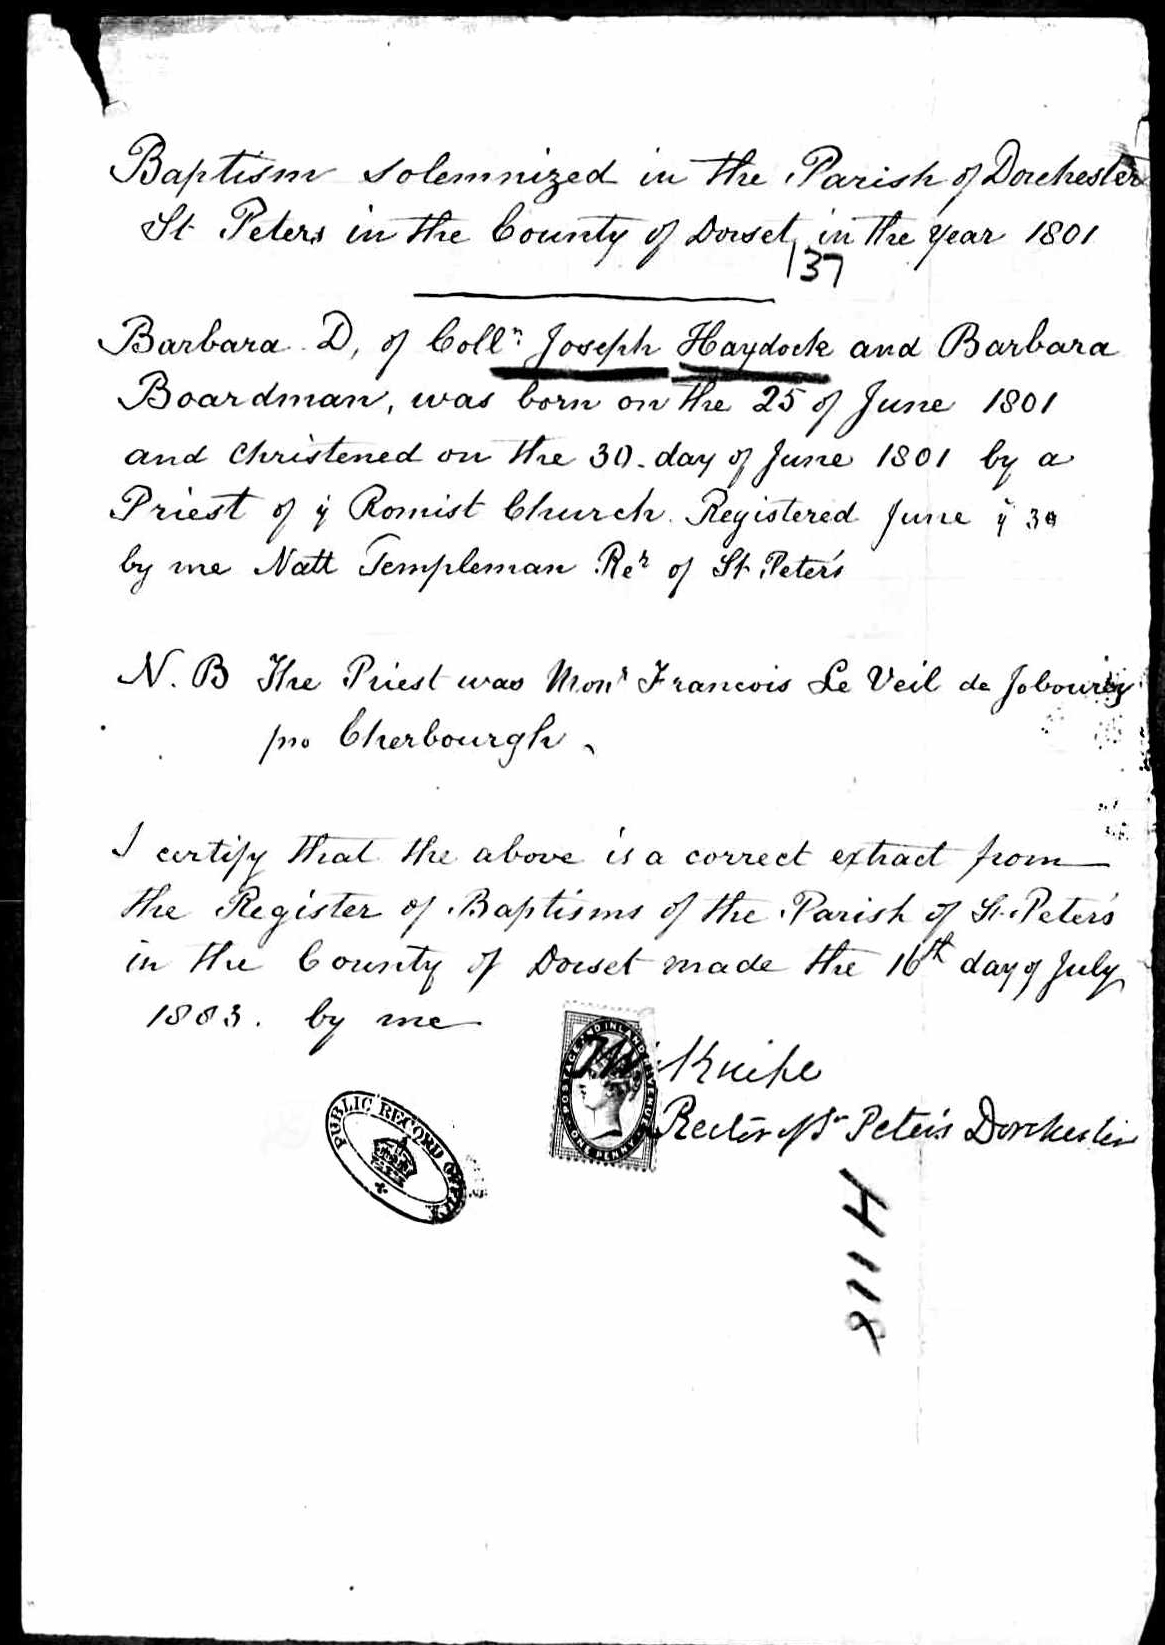 Baptism solemnized in the Parish of Dorchester
St Peters in the County of Dorset, in the year 1801
137
Barbara D, of Colln Joseph Haydock and Barbara
Boardman, was born on the 25 of June 1801
and Christened on the 30. day of June 1801 by a
Priest of ÿ Romist Church. Registered June ÿ 30
by me Natt Templeman Rer of St Peter's
N. B The Priest was Monr Francois Le Veil de
pro Cherbourgh
I certify that the above is a correct extract from
the Register of Baptisms of the Parish of St. Peter's
in the County of Dorset made the 16th day of July
1883. by me
POSTAGE AND INLAND REVENUE
ONE PENNY
Kniipe
Rector of St Peter's Dorchester
PUBLIC RECORD OFFICE
H 118